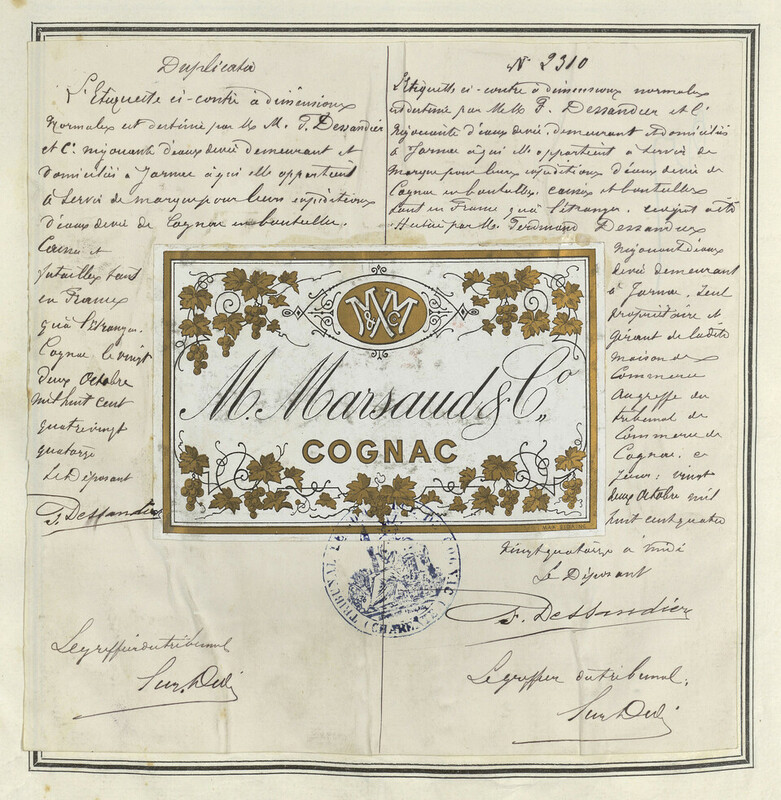 Duplicata
L'Etiquette ci-contre à dimensions
normales est destinée par M. M. F. Dessandier
et Cie négociants d'eaux de vie demeurant et
domiciliés à Jarnac à qui elle appartient
à servir de marque pour leurs expéditions
d'eaux de vie de Cognac en bouteilles
Caisses et
futailles tant
en France
qu'à l'étranger.
Cognac le vingt
deux Octobre
mil huit cent
quatre vingt
quatorze
Le Déposant
F. Dessandier
Le greffier du tribunal
N° 2310
L'Etiquette ci-contre à dimensions normales
est destinée par M. M. F. Dessandier et Cie
négociants d'eaux de vie, demeurant et domiciliés
à Jarnac à qui elle appartient à servir de
marque pour leurs expéditions d'eaux de vie de
Cognac en bouteilles, caisses et futailles
tant en France qu'à l'étranger. ce dépôt a été
effectué par M. Ferdinand Dessandier
négociant d'eaux
de vie demeurant
à Jarnac, seul
propriétaire et
gérant de la dite
maison de
Commerce
au greffe du
tribunal de
Commerce de
Cognac, ce
jour: vingt
deux Octobre mil
huit cent quatre
vingt quatorze à midi
Le Déposant
F. Dessandier
Le greffier du tribunal,
M&CM
M. Marsaud & Co.
COGNAC
TRIBUNAL DE COGNAC (CHARENTE)